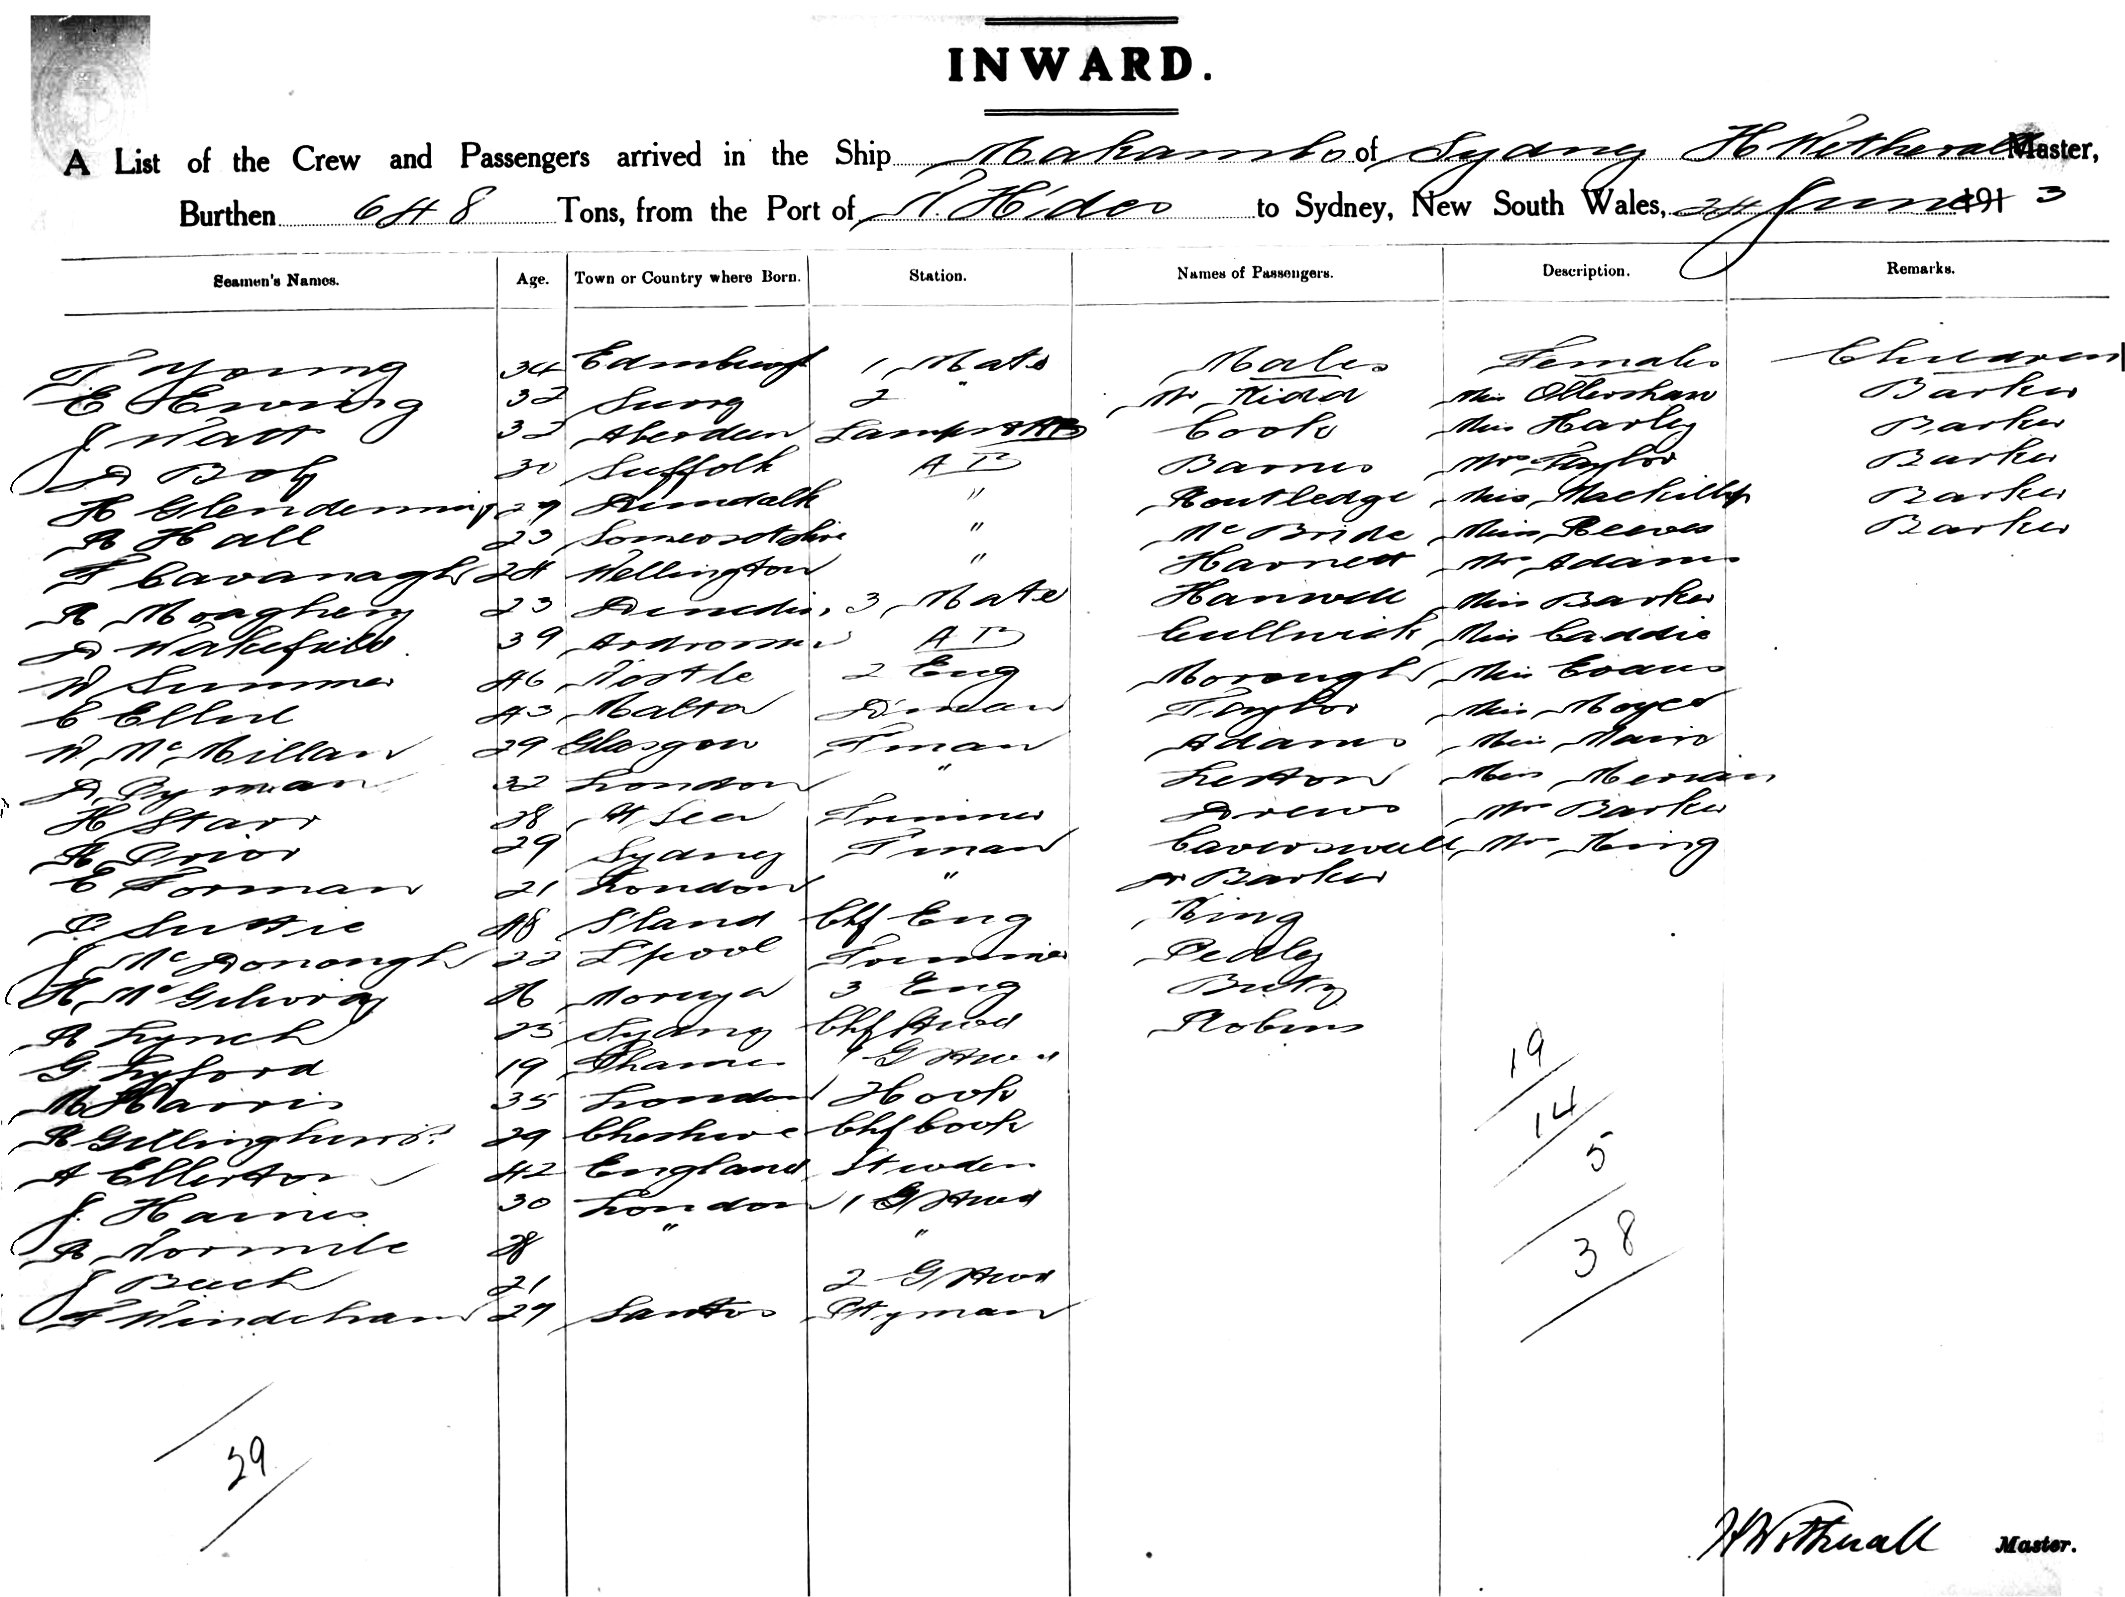 INWARD.
A List of the Crew and Passengers arrived in the Ship Makambo of Sydney H Wetherall Master,
Burthen 648 Tons, from the Port of N. H'des to Sydney, New South Wales, 24 June 191 3
Seamen's Names. Age. Town or Country where Born. Station. Names of Passengers. Description. Remarks.
T Young 34 Edinburgh 1 Mate Males Females Children
E Ewing 32 Surrey 2 " Mr Kidd Miss Ollershaw Barker
J Watt 32 Aberdeen Lamps AB Cook Miss Harley Barker
D Boy 30 Suffolk AB Barnes Mrs Taylor Barker
H Glendenning 29 Dundalk " Routledge Miss Mackillop Barker
R Hall 23 Somersetshire " McBride Miss Reeves Barker
F Cavanagh 24 Wellington " Harnett Mrs Adams
R Moaghen 23 Dunedin 3 Mate Hanwell Miss Barker
D Wakefield 39 AB Cullwick Miss Caddie
W Summer 46 2 Eng Morough Miss Evans
C Ellul 43 Malta D'man Taylor Miss Moyes
W McMillan 29 Glasgow F'man Adams Miss Mair
D Byman 32 London " Letton Miss
H Starr 28 At Sea Trimmer Drews Mrs Barker
R Prior 29 Sydney F'man Caverswall Mrs King
E Forman 21 London " Dr Barker
P Suttie 48 S'land Chf Eng King
J McDonough 22 L'pool Trimmer Pedley
H McGilvray Moruya 3 Eng
R Lynch 25 Sydney Chf Stwd Robins
G. Lyford 19 Thames 1 G Stwd 19
M Harris 35 London Hook 14
R 29 Cheshire Chf Cook 5
A Ellerton 42 England Stwdess
J. Haines 30 London 1 G Stwd
R Normile 28 " " 38
J Beech 21 2 G Stwd
F Windeham 29 Santos P'tryman
29
H Wetherall Master.